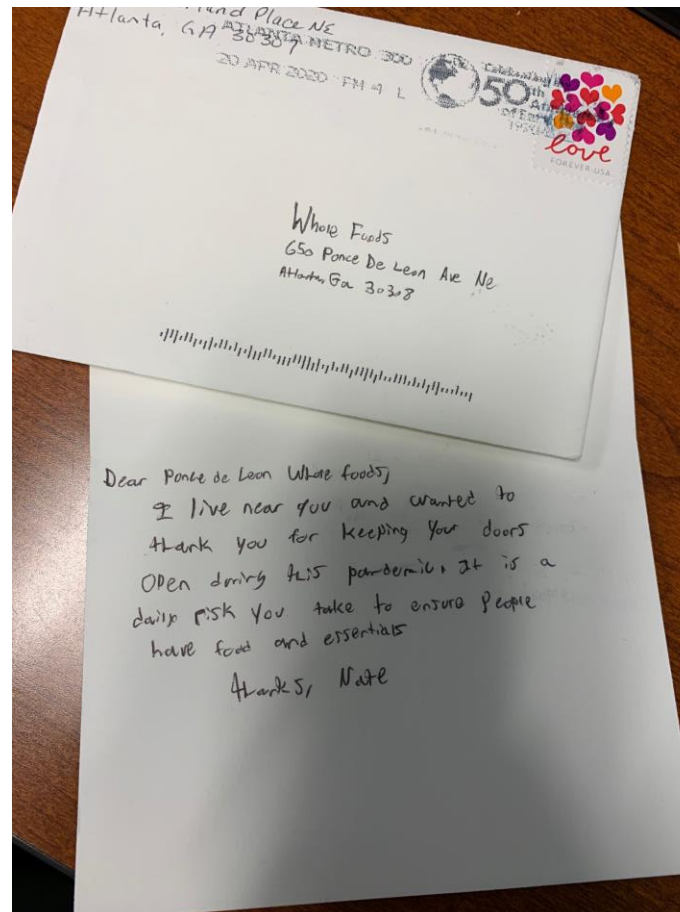 Place NE
Atlanta, GA 30307
ATLANTA METRO 300
20 APR 2020 PM 4 L
50th
love
FOREVER USA
Whole Foods
650 Ponce De Leon Ave Ne
Atlanta, Ga 30308
Dear Ponce de Leon Whole foods,
I live near you and wanted to
thank you for keeping your doors
open during this pandemic. It is a
daily risk you take to ensure people
have food and essentials
thanks, Nate